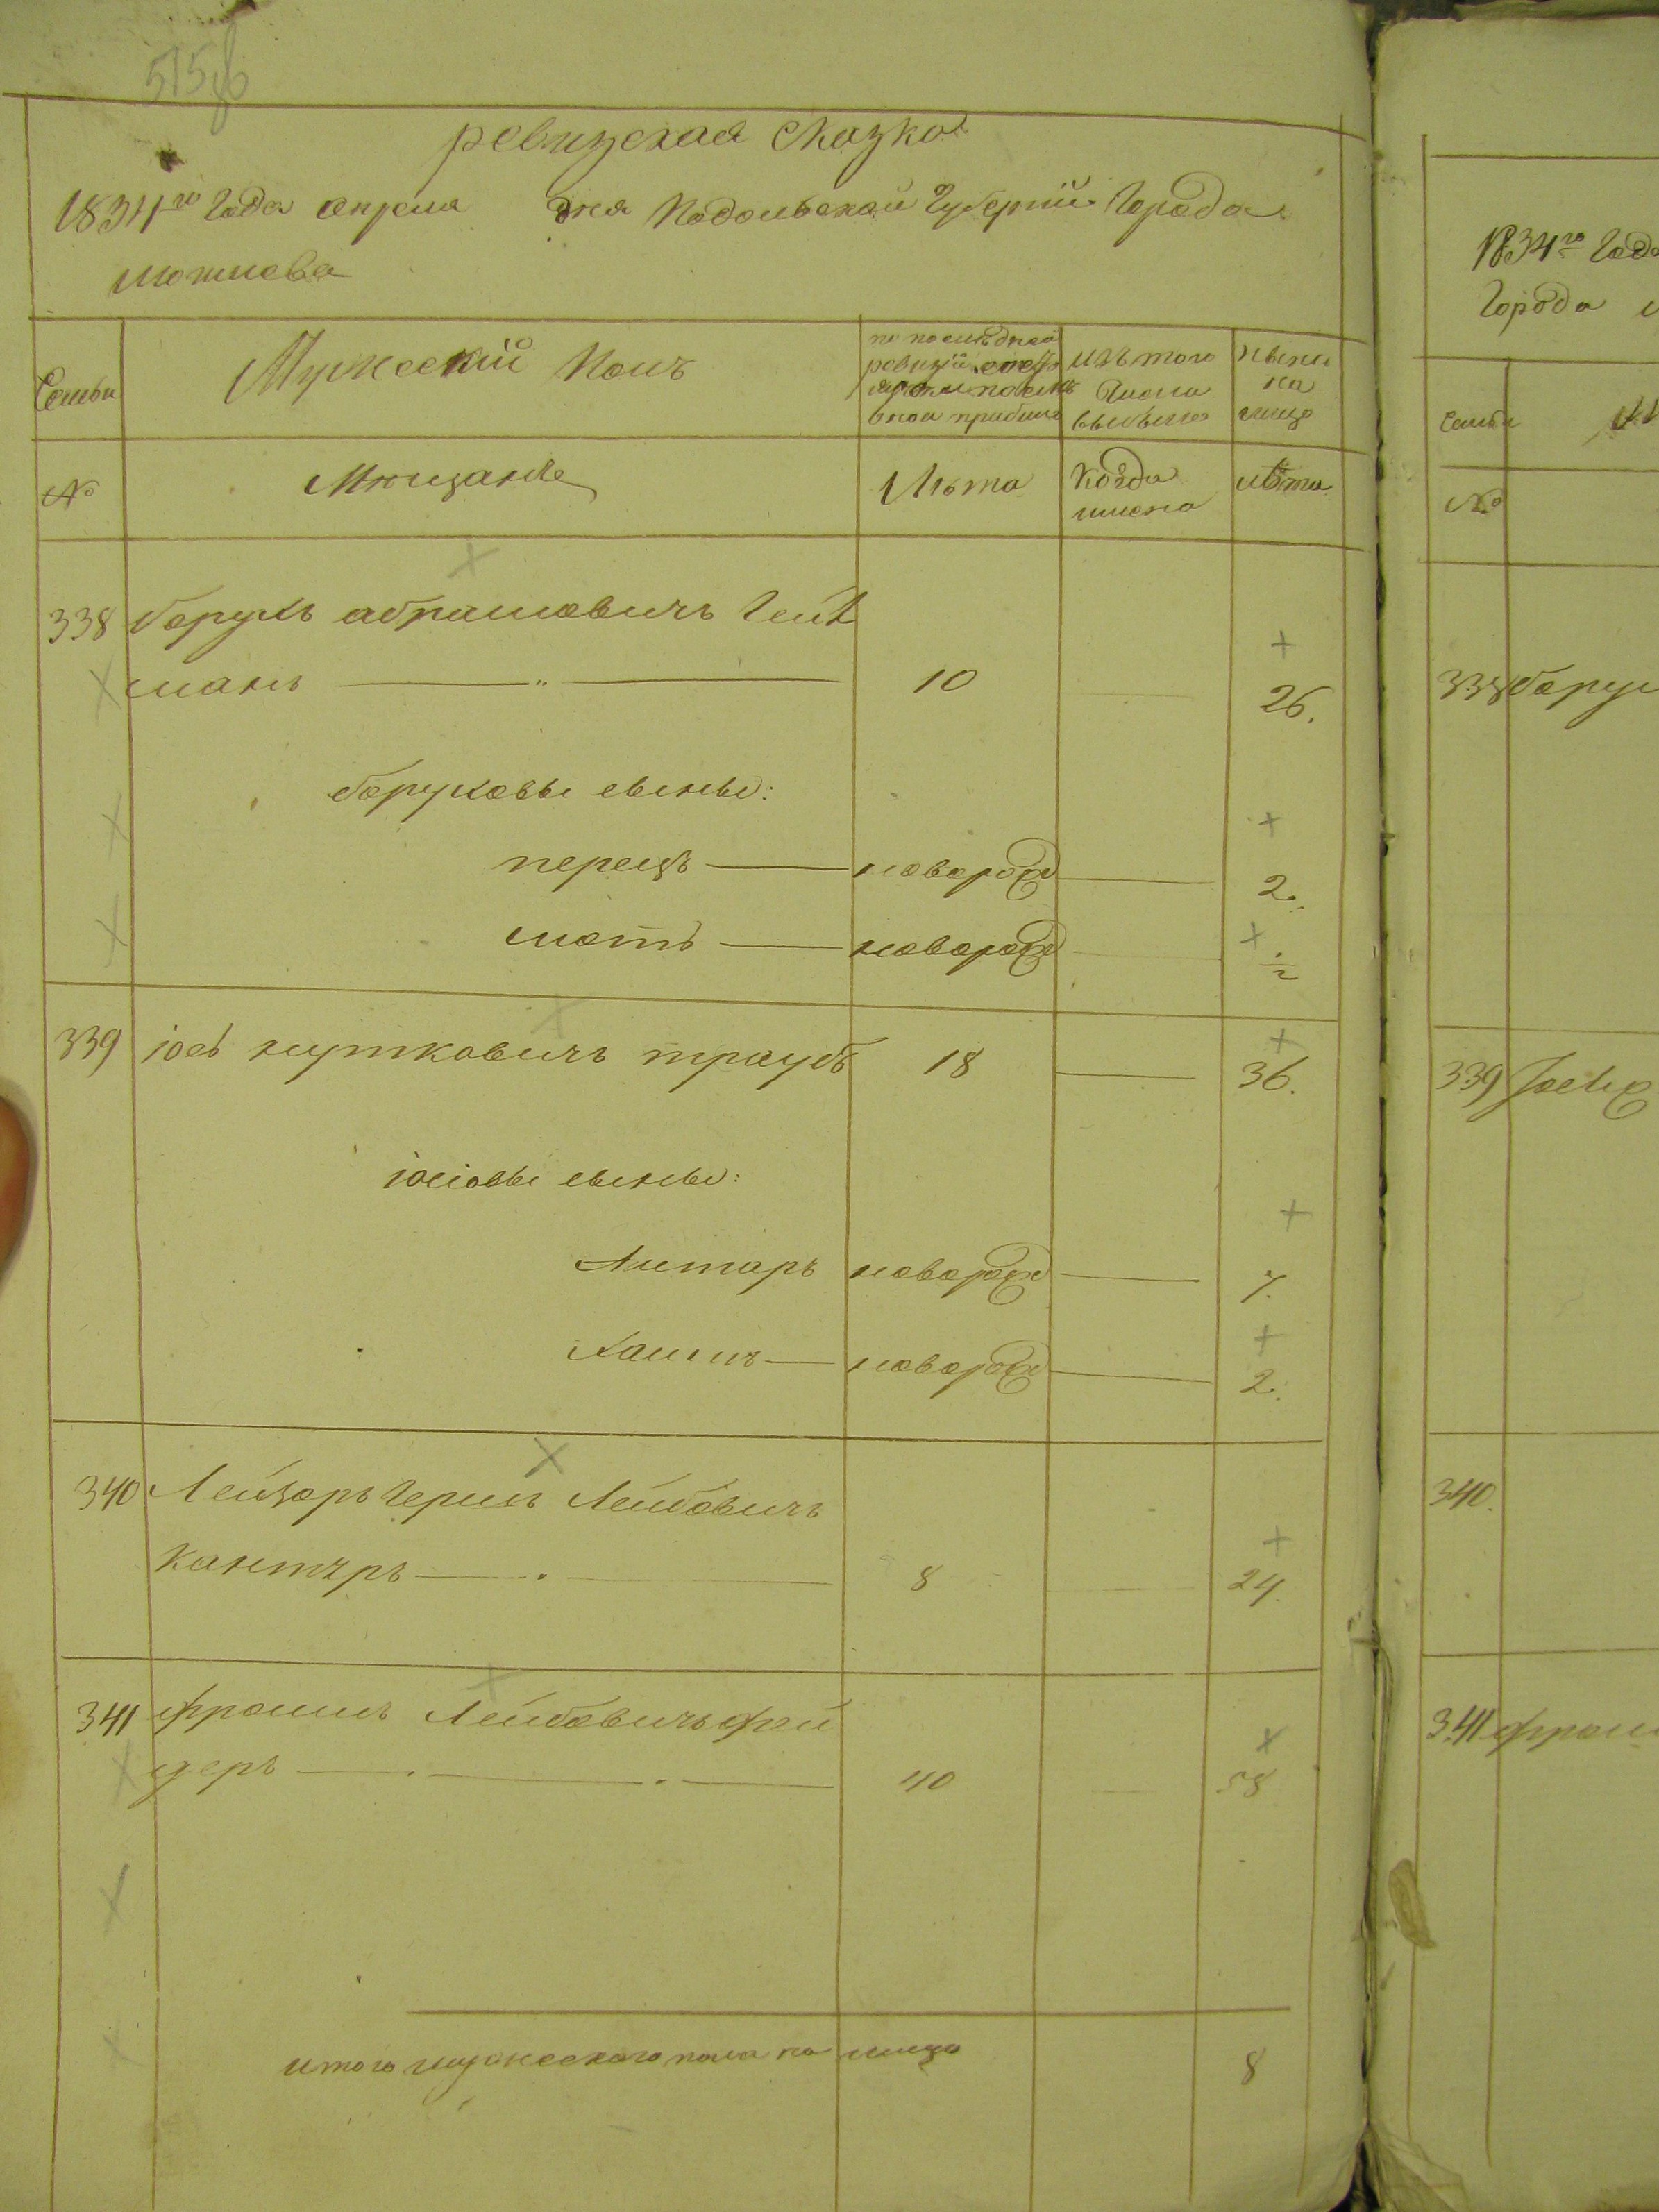 515об
ревизская сказка
1834го Года апреля дня Подольской Губернии Города
могилева
Семьи
Мужеский Полъ
по последней
ревизіи состо
яло и после
оной прибыло
изъ того
Числа
выбыло
ныне
на
лицо
№
Мещане
Лѣта
Когда
имено
лѣта
338 борухъ абрамовичъ Гейх
манъ 10 26.
боруховы сыны:
перецъ новорожд 2.
мотъ новорожд 1/2
339 іось нутковичъ траубъ 18 36.
іосіовы сыны:
новорожд 7.
Хаимъ новорожд 2.
340 Лейзоръ Гершъ Лейбовичъ
Кантъръ 8 24
341 фроимъ Лейбовичъ
деръ 40 58
итого мужескаго пола на лицо 8
1834го Года
Города
Семьи
№
338 бору
339
340.
341 фрои